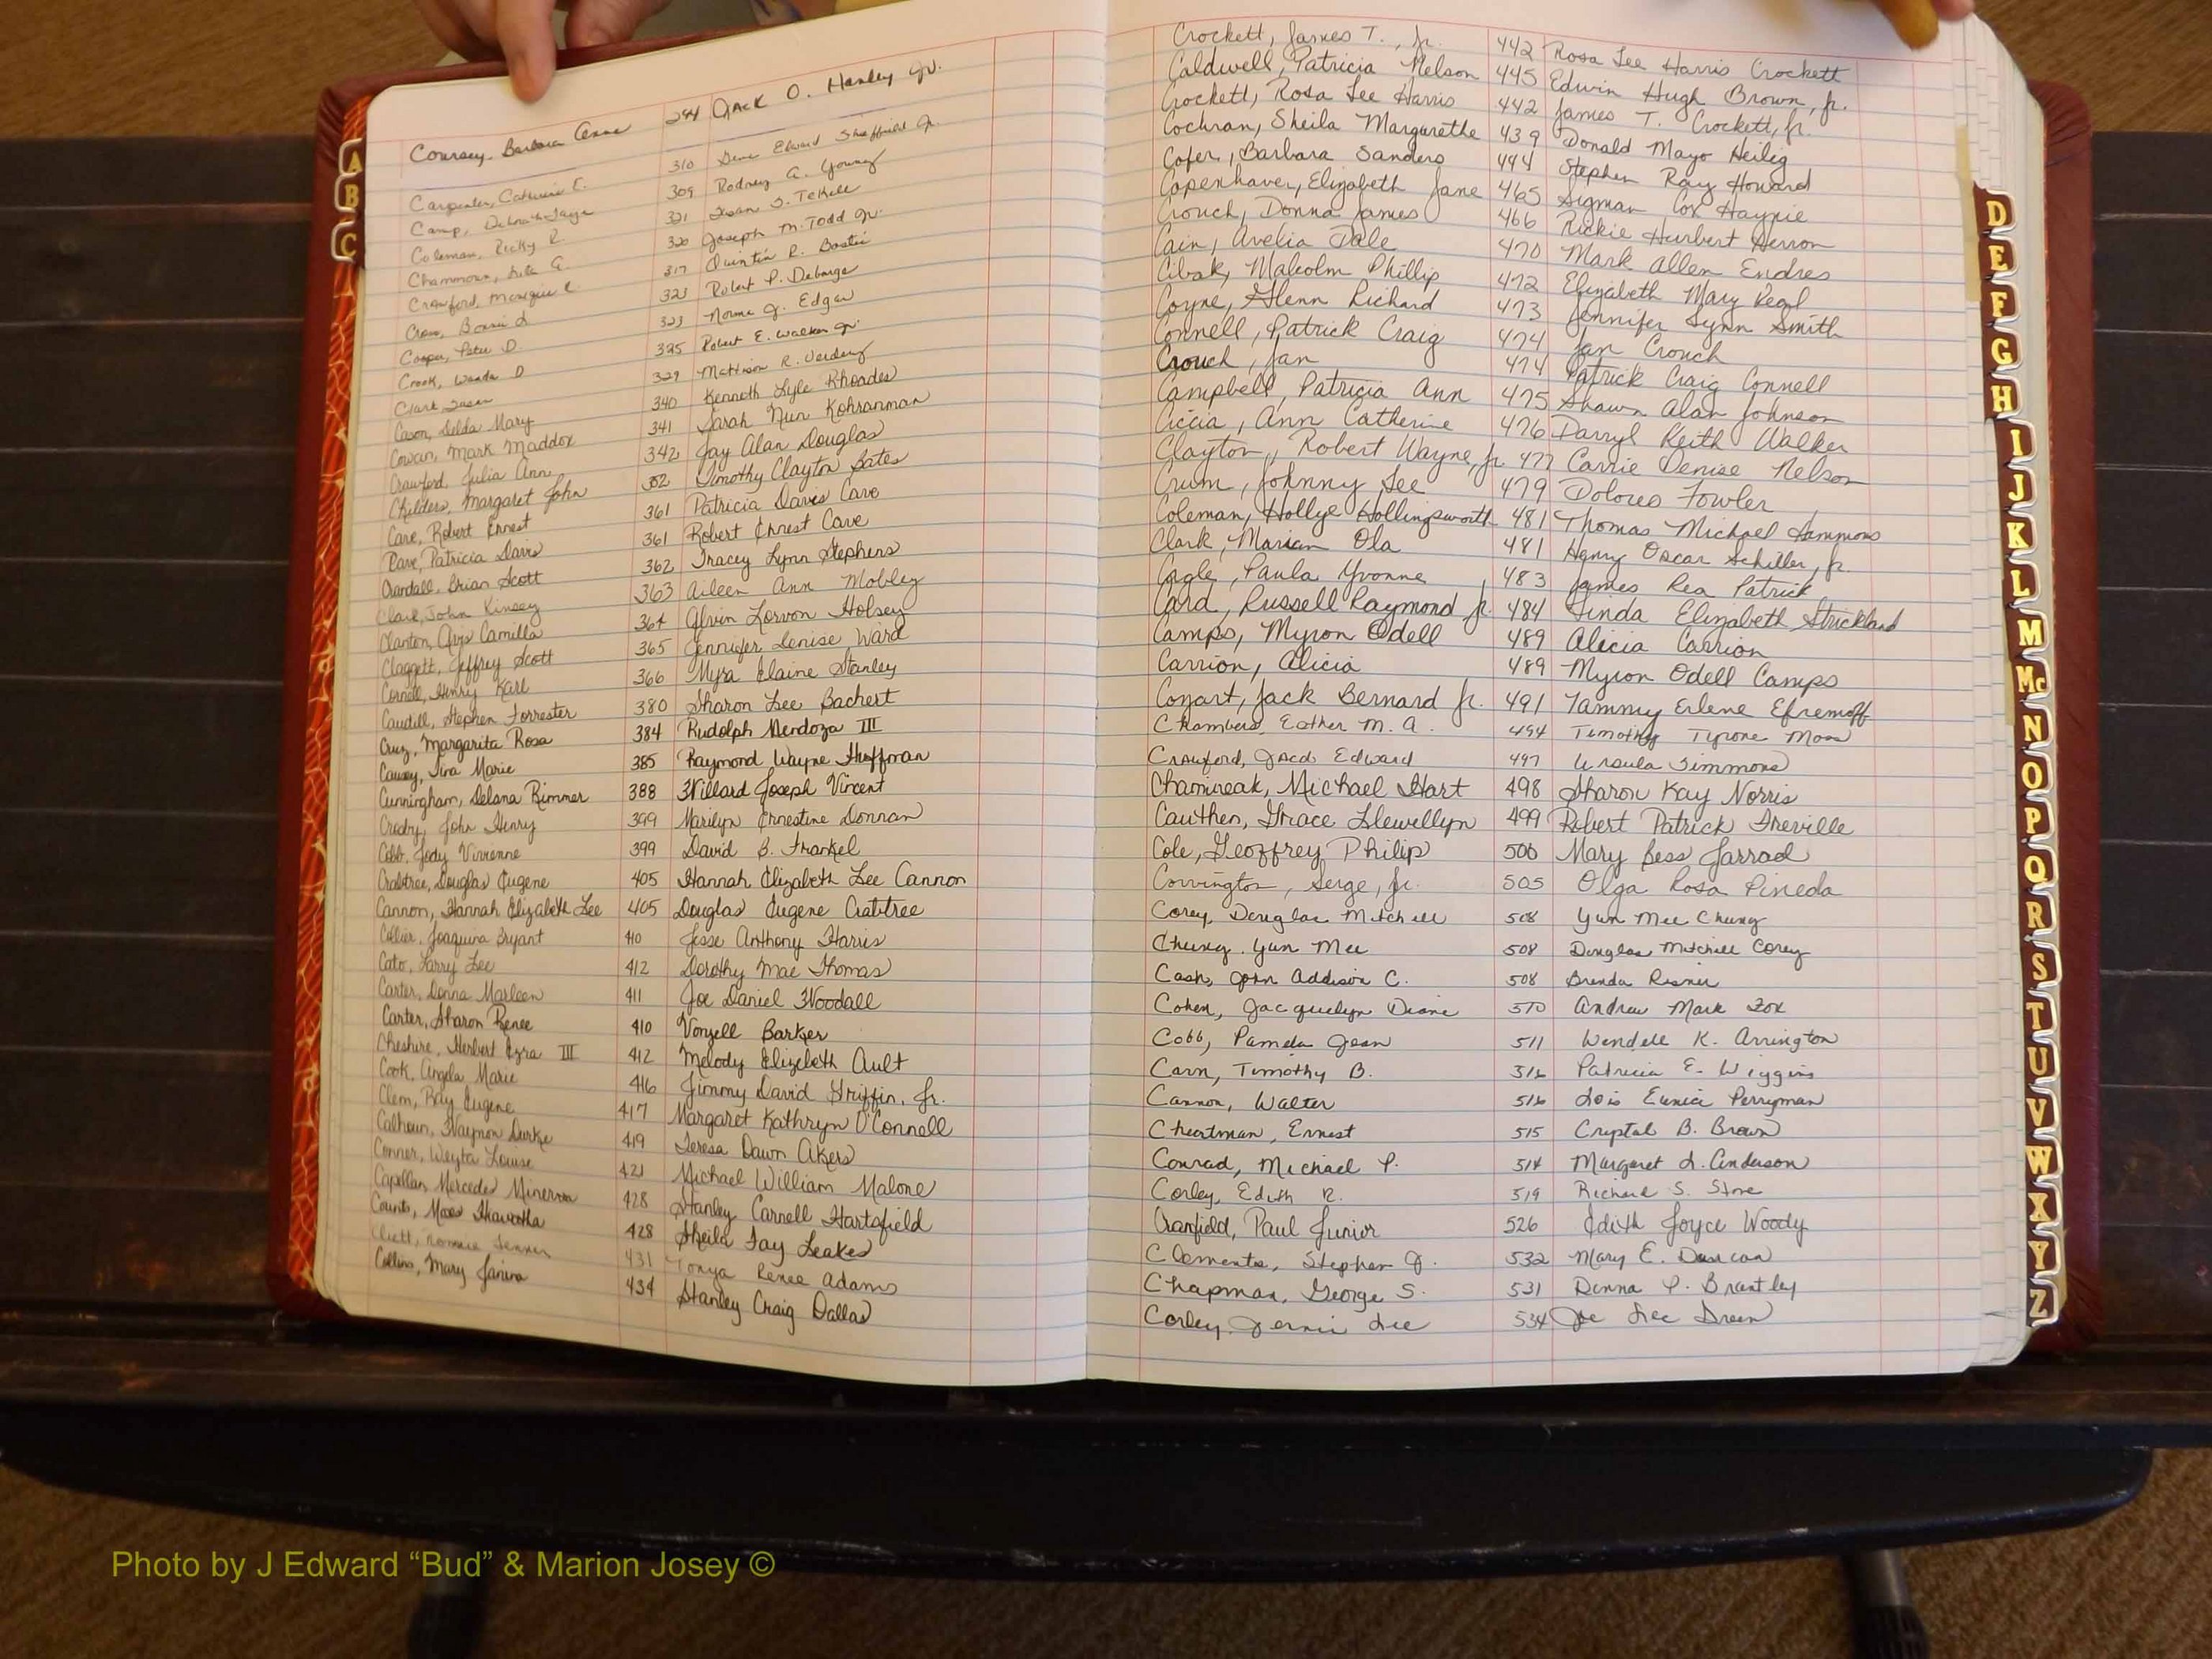 Coursey, Barbara Anne 294 Jack O. Hanley Jr.
Carpenter, Catherine E. 310 Gene Edward Sheffield Jr.
Camp, Deborah Faye 309 Rodney A. Young
Coleman, Ricky R. 321 Susan S. Tekell
Chammoun, Lila G. 320 Joseph M. Todd Jr.
Crawford, Monique C. 317 Quintin R. Bostic
Cross, Bonnie L 323 Robert P. Debarge
Cooper, Peter D. 323 Norma J. Edgar
Crook, Wanda D 325 Robert E. Walker Jr.
Clark Susan 329 Mattison R. Verdery
Cason, Delda Mary 340 Kenneth Lyle Rhoades
Cowan, Mark Maddox 341 Sarah Nun Kohranman
Crawford, Julia Ann 342 Jay Alan Douglas
Childers, Margaret John 352 Timothy Clayton Bates
Cave, Robert Ernest 361 Patricia Davis Cave
Cave, Patricia Davis 361 Robert Ernest Cave
Crandall, Brian Scott 362 Tracey Lynn Stephens
Clark, John Kinsey 363 Aileen Ann Mobley
Clanton, Camilla 364 Alvin Lorvon Holsey
Claggett, Jeffrey Scott 365 Jennifer Denise Ward
Cornell, Henry Karl 366 Myra Elaine Stanley
Caudill, Stephen Forrester 380 Sharon Lee Bachert
Cruz, Margarita Rosa 384 Rudolph Mendoza III
Causey, Tina Marie 385 Raymond Wayne Huffman
Cunningham, Delana Rimmer 388 Willard Joseph Vincent
Crosby, John Henry 399 Marilyn Ernestine Donnan
Cobb, Jody Vivienne 399 David B. Frankel
Crabtree, Douglas Eugene 405 Hannah Elizabeth Lee Cannon
Cannon, Hannah Elizabeth Lee 405 Douglas Eugene Crabtree
Collier, Joaquina Bryant 410 Jesse Anthony Harris
Cato, Larry Lee 412 Dorothy Mae Thomas
Carter, Donna Marleen 411 Joe Daniel Woodall
Carter, Sharon Renee 410 Vonzell Barker
Cheshire, Herbert Ezra III 412 Melody Elizabeth Ault
Cook, Angela Marie 416 Jimmy David Griffin, Jr.
Clem, Ray Eugene 417 Margaret Kathryn O'Connell
Calhoun, Haymon Durke 419 Teresa Dawn Akers
Conner, Weyta Louise 421 Michael William Malone
Capellan, Mercedes Minerva 428 Stanley Carnell Hartsfield
Counts, Moses Hiawatha 428 Sheila Fay Leakes
Cliett, Ronnie 431 Tonya Renee Adams
Collins, Mary Janina 434 Stanley Craig Dallas
Crockett, James T., Jr. 442 Rosa Lee Harris Crockett
Caldwell, Patricia Nelson 445 Edwin Hugh Brown, Jr.
Crockett, Rosa Lee Harris 442 James T. Crockett, Jr.
Cochran, Sheila Margarethe 439 Donald Mayo Heilig
Cofer, Barbara Sanders 444 Stephen Ray Howard
Copenhaver, Elizabeth Jane 465 Sigman Cox Haynie
Crouch, Donna James 466 Rickie Hurbert Herron
Cain, Avelia Dale 470 Mark Allen Endres
Cibak, Malcolm Phillip 472 Elizabeth Mary Regal
Coyne, Glenn Richard 473 Jennifer Lynn Smith
Connell, Patrick Craig 474 Jan Crouch
Crouch, Jan 474 Patrick Craig Connell
Campbell, Patricia Ann 475 Shawn Alan Johnson
Ciccia, Ann Catherine 476 Darryl Keith Walker
Clayton, Robert Wayne, Jr. 477 Carrie Denise Nelson
Crum, Johnny Lee 479 Dolores Fowler
Coleman, Hollye Hollingsworth 481 Thomas Michael Sammons
Clark, Marian Ola 481 Henry Oscar Schiller, Jr.
Cagle, Paula Yvonne 483 James Rea Patrick
Card, Russell Raymond Jr. 484 Linda Elizabeth Strickland
Camps, Myron Odell 489 Alicia Carrion
Carrion, Alicia 489 Myron Odell Camps
Cozart, Jack Bernard Jr. 491 Tammy Erlene Efremoff
Chambers, Esther M. A. 494 Timothy Tyrone Moss
Crawford, Jacd Edward 497 Ursula Simmons
Chamireak, Michael Hart 498 Sharon Kay Norris
Cauthen, Grace Llewellyn 499 Robert Patrick Greville
Cole, Geoffrey Philip 500 Mary Bess Jarrad
Corvington, Serge, Jr. 505 Olga Rosa Pineda
Corey, Douglas Mitchell 508 Yun Mee Chung
Chung, Yun Mee 508 Douglas Mitchell Corey
Cash, John Addison C. 508 Brenda Risner
Cohen, Jacquelyn Diane 510 Andrew Mark Fox
Cobb, Pamela Jean 511 Wendell K. Arrington
Carn, Timothy B. 516 Patricia E. Wiggins
Cannon, Walter 516 Lois Eunice Perryman
Cheirtman, Ernest 515 Cryptal B. Brown
Conrad, Michael P. 514 Margaret L. Anderson
Corley, Edith R. 519 Richard S. Stone
Cranfield, Paul Junior 526 Edith Joyce Woody
Clements, Stephen J. 532 Mary E. Duncan
Chapman, George S. 531 Donna P. Brantley
Corley, Jernie Lee 534 Joe Lee Green
A
B
C
D
E
F
G
H
I
J
K
L
M
Mc
N
O
P
Q
R
S
T
U
V
W
X
Y
Z
Photo by J Edward “Bud” & Marion Josey ©